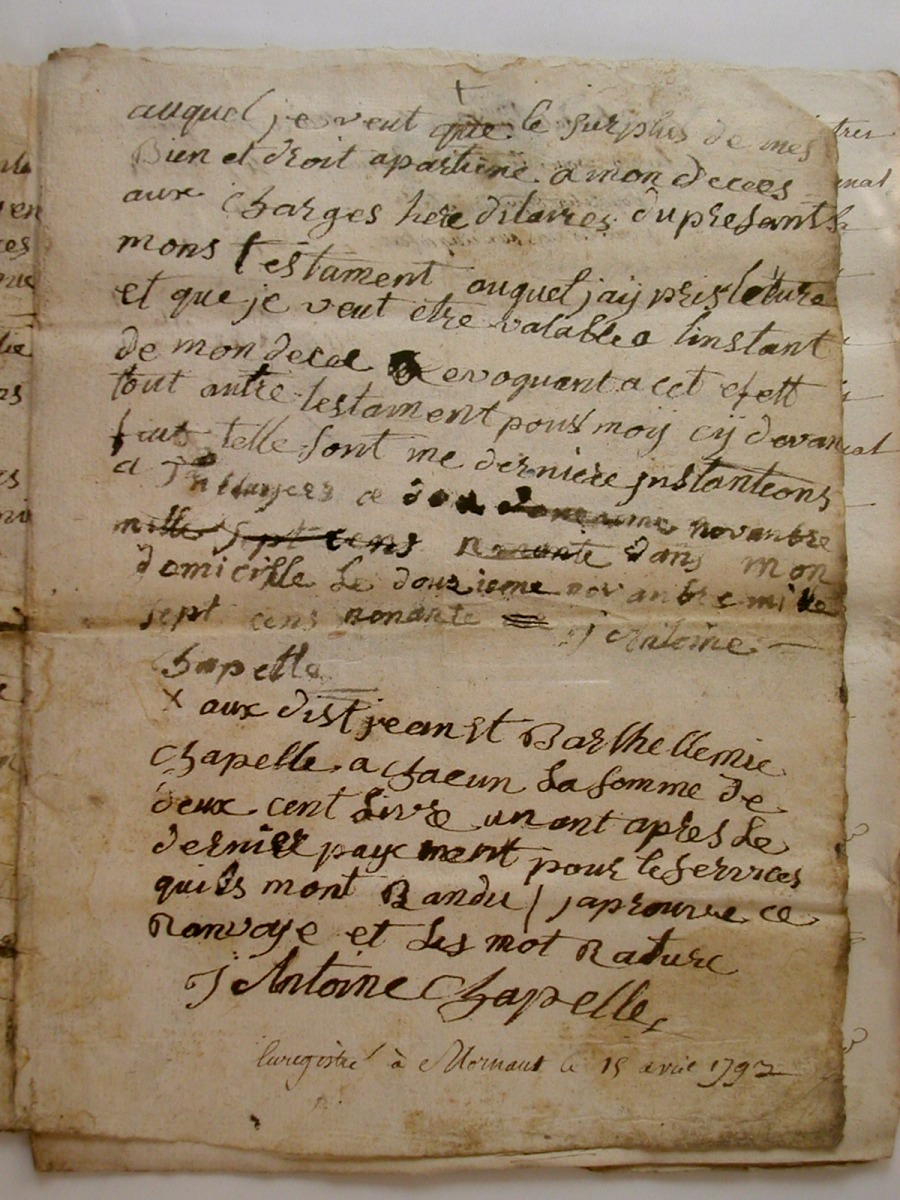 +
auquel je veut que le surplus de mes
Bien et droit apartiene a mon decees
aux charges hereditaires du presants
mons testament auquel jaÿ pris leture
et que je veut etre valable a linstant
de mon decee Revoquant a cet efett
tout autre testament pour moÿ cÿ devant
faut telle sont me derniere jnstanteons
a ce novanbre
mille sept cens nonante dans mon
domicille Le douzieme novanbre mille
sept cens nonante j Antoine
Chapelle
x aux dist jean st Barthellemie
Chapelle a chacun La somme de
deux cent Livre un ant apres Le
dernier payement pour le services
quils mont Randu / japrouve ce
Ranvoye et Les mot Rature
j Antoine Chapelle
Enregistré à Mornant le 15 avril 1792